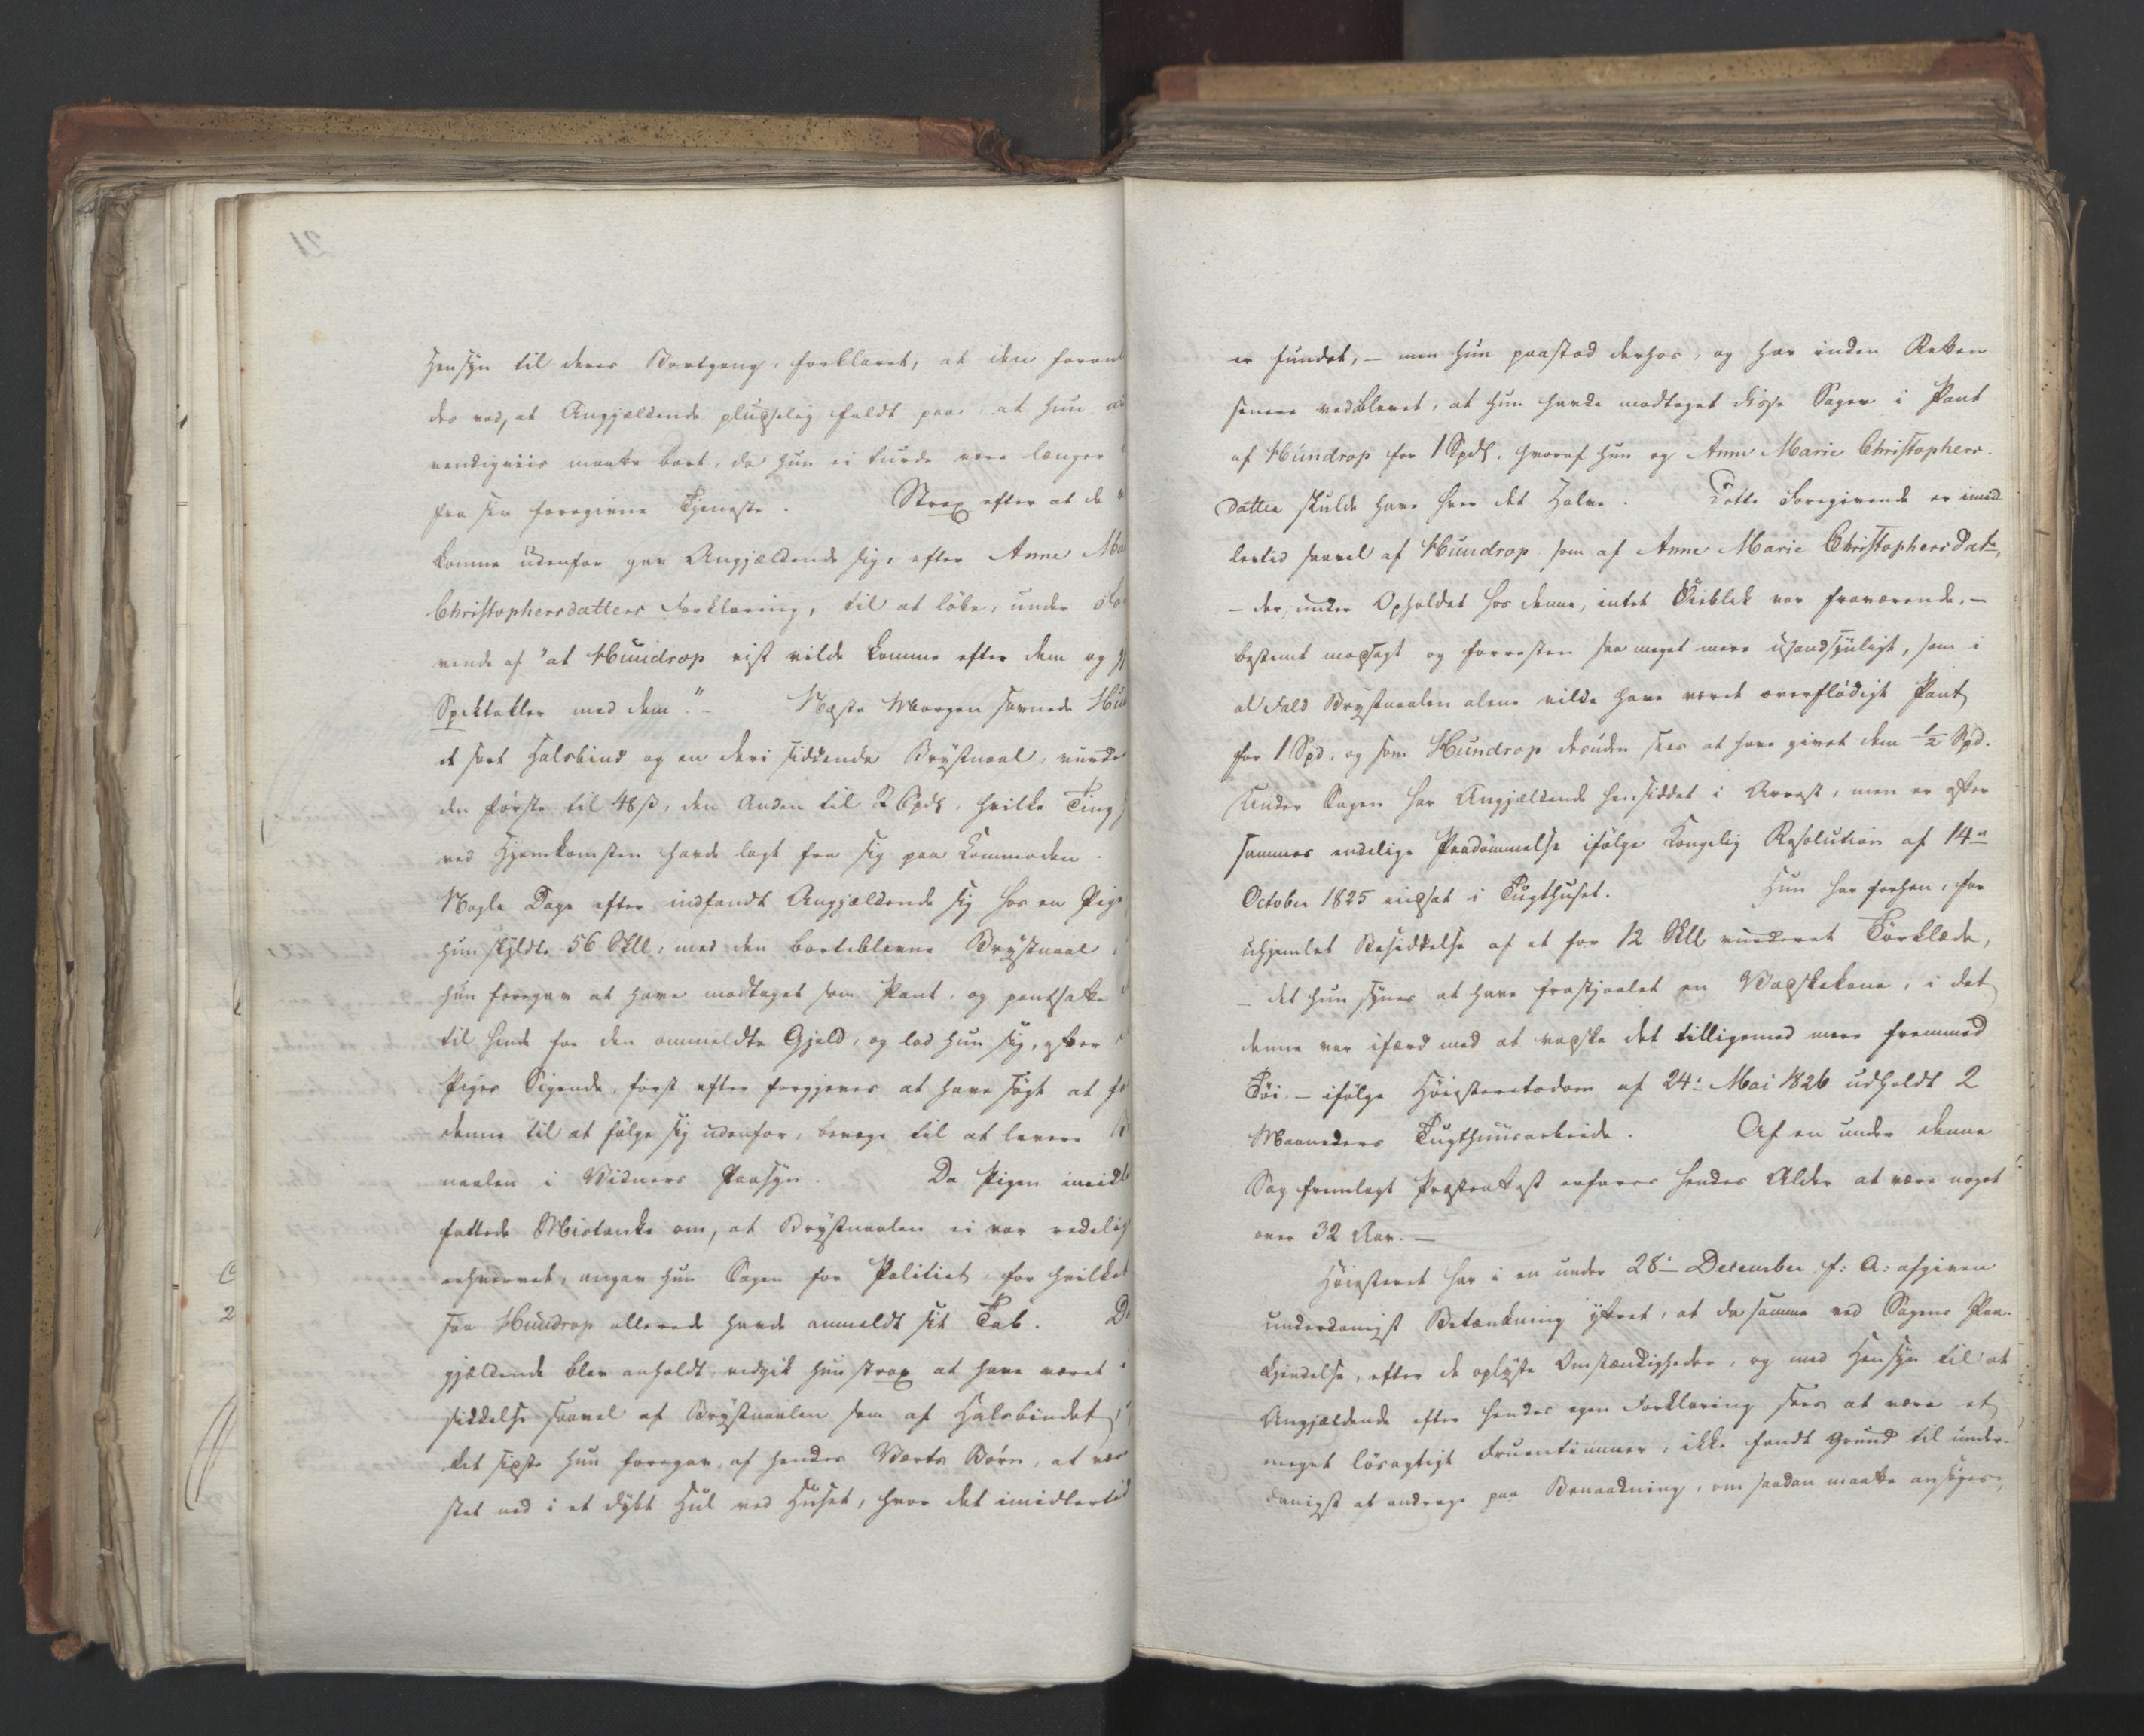 Hensyn til deres Bortgang, forklaret, at den foran
des ved, at Angjældende pludselig faldt paa, at hun
vendigviis maatte bort, da hun ei turde være længer
fra sin foregivne Tjeneste. Strax efter at de
komne udenfor gav Angjældende sig, efter Anne Ma
Christophersdatters Forklaring, til at løbe, under
vende af "at Hundrop vist vilde komme efter dem og
Spektakler med dem". – Næste Morgen savnede Hun
et sort Halsbind og en deri siddende Brystnaal, vurde
den første til 48 ß, den Anden til 2 Spdl, hvilke Ting
ved Hjemkomsten havde lagt fra sig paa Kommoden.
Nogle Dage efter indfandt Angjældende sig hos en Pige
hun skyldte 56 Skll, med den bortblevne Brystnaal
hun foregav at have modtaget som Pant, og pantsatte
til hende for den ommeldte Gjæld, og lod hun sig, efter
Piges Sigende, først efter forgjæves at have søgt at
denne til at følge sig udenfor, bevæge til at levere
naalen i Vidners Paasyn. Da Pigen imidl
fattede Mistanke om, at Brystnaalen ei var redelig
erhvervet, angav hun Sagen for Politiet, for hvilket
saa Hundrop allerede havde anmeldt sit Tab.
gjældende blev anholdt vedgik hun strax at have været i
siddelse saavel af Brystnaalen som af Halsbindet,
det sidste hun foregav, af hendes Værts Børn, at være
stet ned i et dybt Hul ved Huset, hvor det imidlertid
er fundet, – men hun paastod derhos, og har inden Retten
senere vedblevet, at hun havde modtaget disse Sager i Pant
af Hundrop for 1 Spdl. hvoraf hun og Anne Marie Christophers-
datter skulde have hver det Halve. Dette Foregivende er imid-
lertid saavel af Hundrop som af Anne Marie Christophersdatr,
– der, under Opholdet hos denne, intet Øieblik var fraværende, –
bestemt modsagt og forresten saa meget mere usandsynligt, som i
al Fald Brystnaalen alene vilde have været overflødigt Pant
for 1 Spd. og som Hundrop desuden sees at have givet dem ½ Spd.
Under Sagen har Angjældende hensiddet i Arrest, men er efter
sammes endelige Paadømmelse ifølge Kongelig Resolution af 14de
October 1825 indsat i Tugthuset. Hun har forhen, for
uhjemlet Besiddelse af et for 12 Skll vurderet Tørklæde,
– det hun synes at have frastjaalet en Vadskekone, i det
denne var ifærd med at vadske det tilligemed mere fremmed
Tøi – ifølge Høiesteretsdom af 24de Mai 1826 udholdt 2
Maaneders Tugthuusarbeide. Af en under denne
Sag fremlagt Præsteattest erfares hendes Alder at være noget
over 32 Aar. –
Høiesteret har i en under 28de December f: A: afgiven
underdanigst Betænkning ýttret, at da samme ved Sagens Paa-
kjendelse, efter de oplyste Omstændigheder, og med Hensyn til at
Angjældende efter hendes egen Forklaring sees at være et
meget løsagtigt Fruentimmer, ikke fandt Grund til under-
danigst at andrage paa Benaadning, om saadan maatte ansøges,